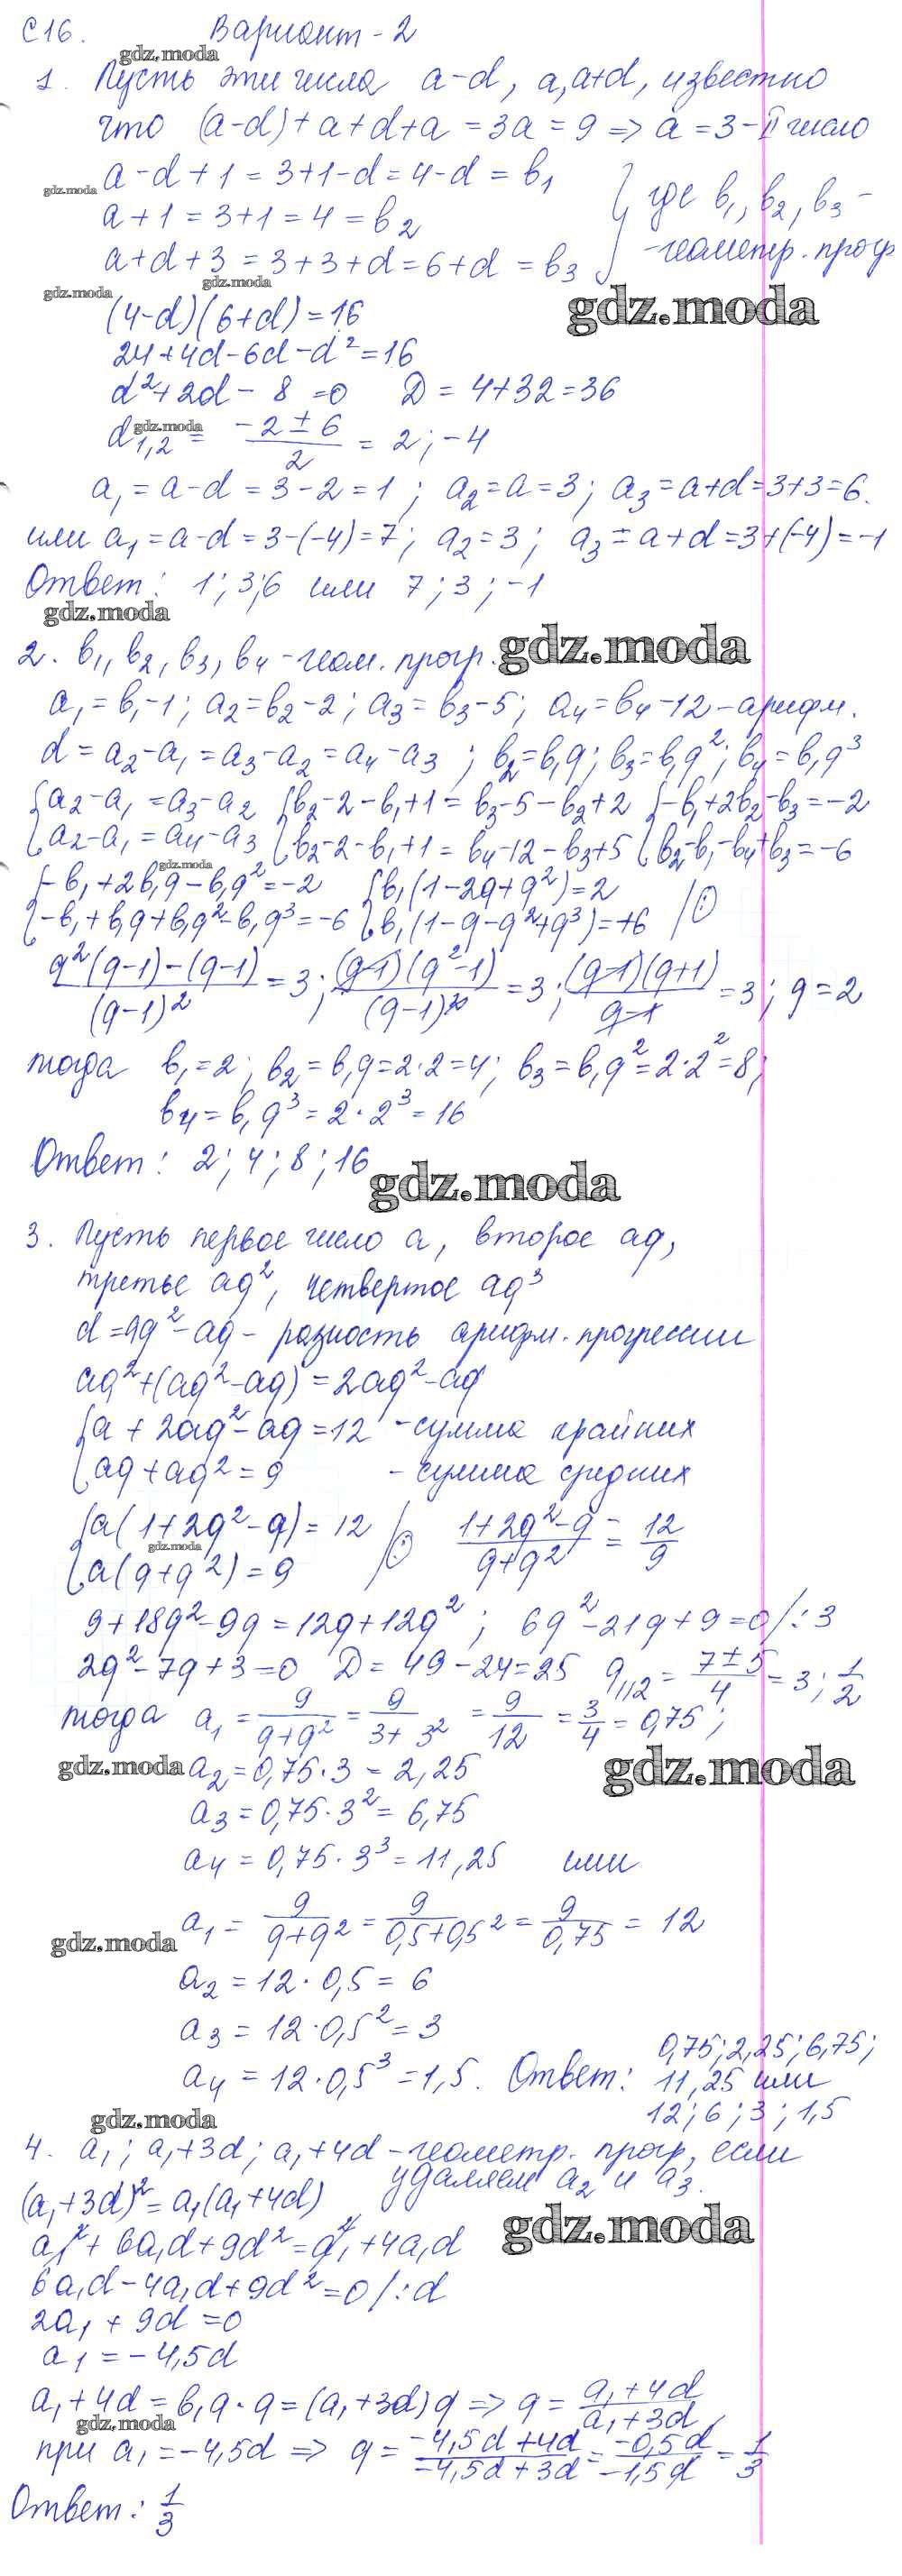 С16. Вариант-2
gdz.moda
1. Пусть эти числа a-d, a, a+d, известно
что (a-d)+a+d+a=3a=9 ⇒ a=3-II число
a-d+1=3+1-d=4-d=b₁
gdz.moda
a+1=3+1=4=b₂
a+d+3=3+3+d=6+d=b₃ } где b₁, b₂, b₃ -
-геометр. прогр
gdz.moda gdz.moda
(4-d)(6+d)=16
gdz.moda
24+4d-6d-d²=16
d²+2d-8=0 D=4+32=36
gdz.moda
d₁,₂ = (-2±6)/2 = 2; -4
a₁=a-d=3-2=1; a₂=a=3; a₃=a+d=3+3=6.
или a₁=a-d=3-(-4)=7; a₂=3; a₃=a+d=3+(-4)=-1
Ответ: 1;3;6 или 7;3;-1
gdz.moda
2. b₁, b₂, b₃, b₄-геом. прогр.
gdz.moda
a₁=b₁-1; a₂=b₂-2; a₃=b₃-5; a₄=b₄-12-арифм.
d=a₂-a₁=a₃-a₂=a₄-a₃; b₂=b₁q; b₃=b₁q²; b₄=b₁q³
{a₂-a₁=a₃-a₂ {b₂-2-b₁+1=b₃-5-b₂+2 {-b₁+2b₂-b₃=-2
{a₂-a₁=a₄-a₃ {b₂-2-b₁+1=b₄-12-b₃+5 {b₂-b₁-b₄+b₃=-6
gdz.moda
{-b₁+2b₁q-b₁q²=-2 {b₁(1-2q+q²)=2
{-b₁+b₁q+b₁q²-b₁q³=-6 {b₁(1-q-q²+q³)=+6 |:
(q²(q-1)-(q-1))/(q-1)² = 3; ((q-1)(q²-1))/(q-1)² = 3; ((q-1)(q+1))/(q-1) = 3; q=2
тогда b₁=2; b₂=b₁q=2·2=4; b₃=b₁q²=2·2²=8;
b₄=b₁q³=2·2³=16
Ответ: 2;4;8;16
gdz.moda
3. Пусть первое число a, второе aq,
третье aq², четвертое aq³
d=aq²-aq - разность арифм. прогрессии
aq²+(aq²-aq)=2aq²-aq
{a+2aq²-aq=12 -сумма крайних
{aq+aq²=9 -сумма средних
{a(1+2q²-q)=12
gdz.moda
{a(q+q²)=9 |: (1+2q²-q)/(q+q²) = 12/9
9+18q²-9q=12q+12q²; 6q²-21q+9=0/:3
2q²-7q+3=0 D=49-24=25 q₁,₂=(7±5)/4=3; 1/2
тогда a₁=9/(q+q²)=9/(3+3²)=9/12=3/4=0,75;
gdz.moda
a₂=0,75·3=2,25
gdz.moda
a₃=0,75·3²=6,75
a₄=0,75·3³=11,25 или
a₁=9/(q+q²)=9/(0,5+0,5²)=9/0,75=12
gdz.moda
a₂=12·0,5=6
a₃=12·0,5²=3
a₄=12·0,5³=1,5. Ответ: 0,75; 2,25; 6,75;
11,25 или
12; 6; 3; 1,5
gdz.moda
4. a₁; a₁+3d; a₁+4d-геометр. прогр, если
удаляем a₂ и a₃.
(a₁+3d)²=a₁(a₁+4d)
gdz.moda
a₁²+6a₁d+9d²=a₁²+4a₁d
6a₁d-4a₁d+9d²=0/:d
2a₁+9d=0
a₁=-4,5d
a₁+4d=b₁q·q=(a₁+3d)q ⇒ q=(a₁+4d)/(a₁+3d)
gdz.moda
при a₁=-4,5d ⇒ q=(-4,5d+4d)/(-4,5d+3d)=(-0,5d)/(-1,5d)=1/3
Ответ: 1/3